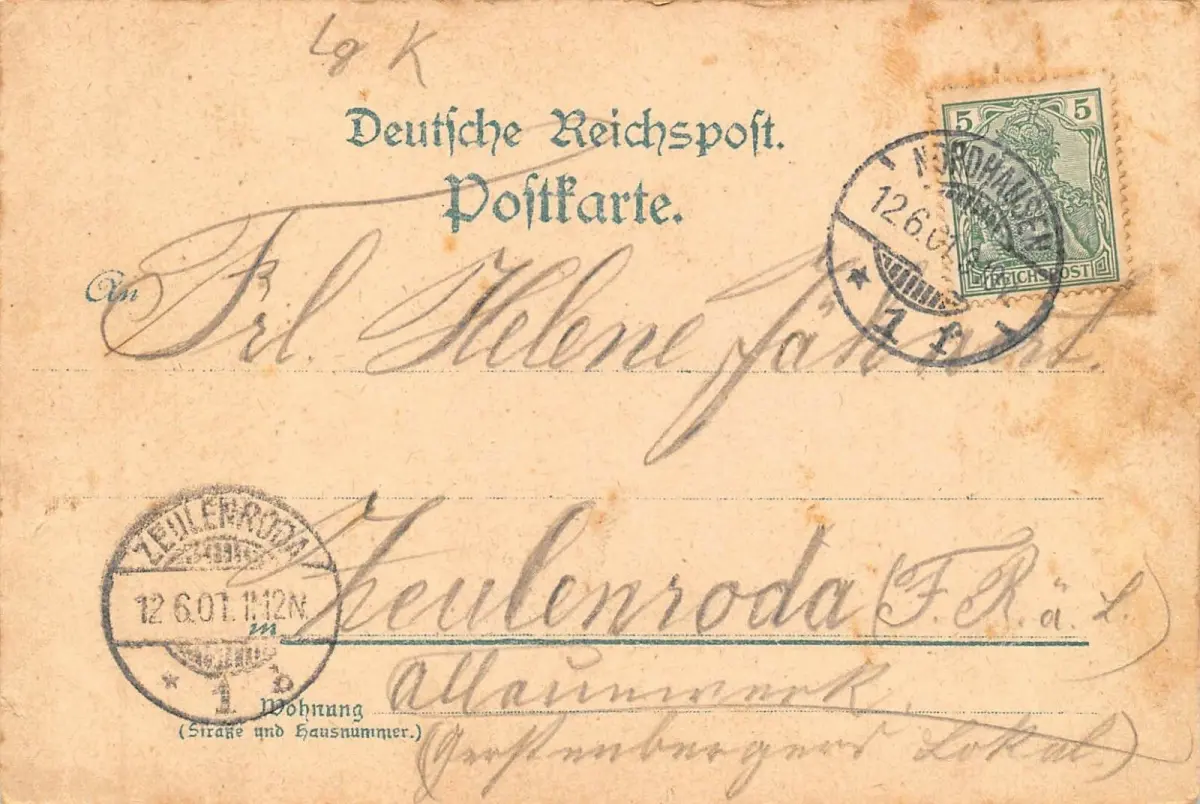 Lg K
Deutsche Reichspost.
Postkarte.
5 5
REICHSPOST
NORDHAUSEN
12.6.01
* 1 f
An Frl. Helene Jähnert.
ZEULENRODA
12.6.01. 11-12N.
* 1 b
in Zeulenroda (F. R. ä. L.)
Wohnung
(Straße und Hausnummer.)
Allaunwerk.
(Gerstenbergers Lokal.)